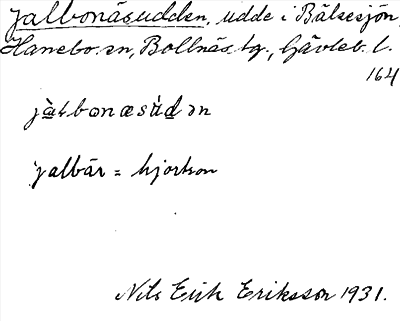 Jalbonäsudden, udde i Bälsesjön,
Hanebo sn, Bollnäs tg., Gävleb. l.
164
jàɫbonæsùdən
jalbär = hjortron
Nils Erik Eriksson 1931.